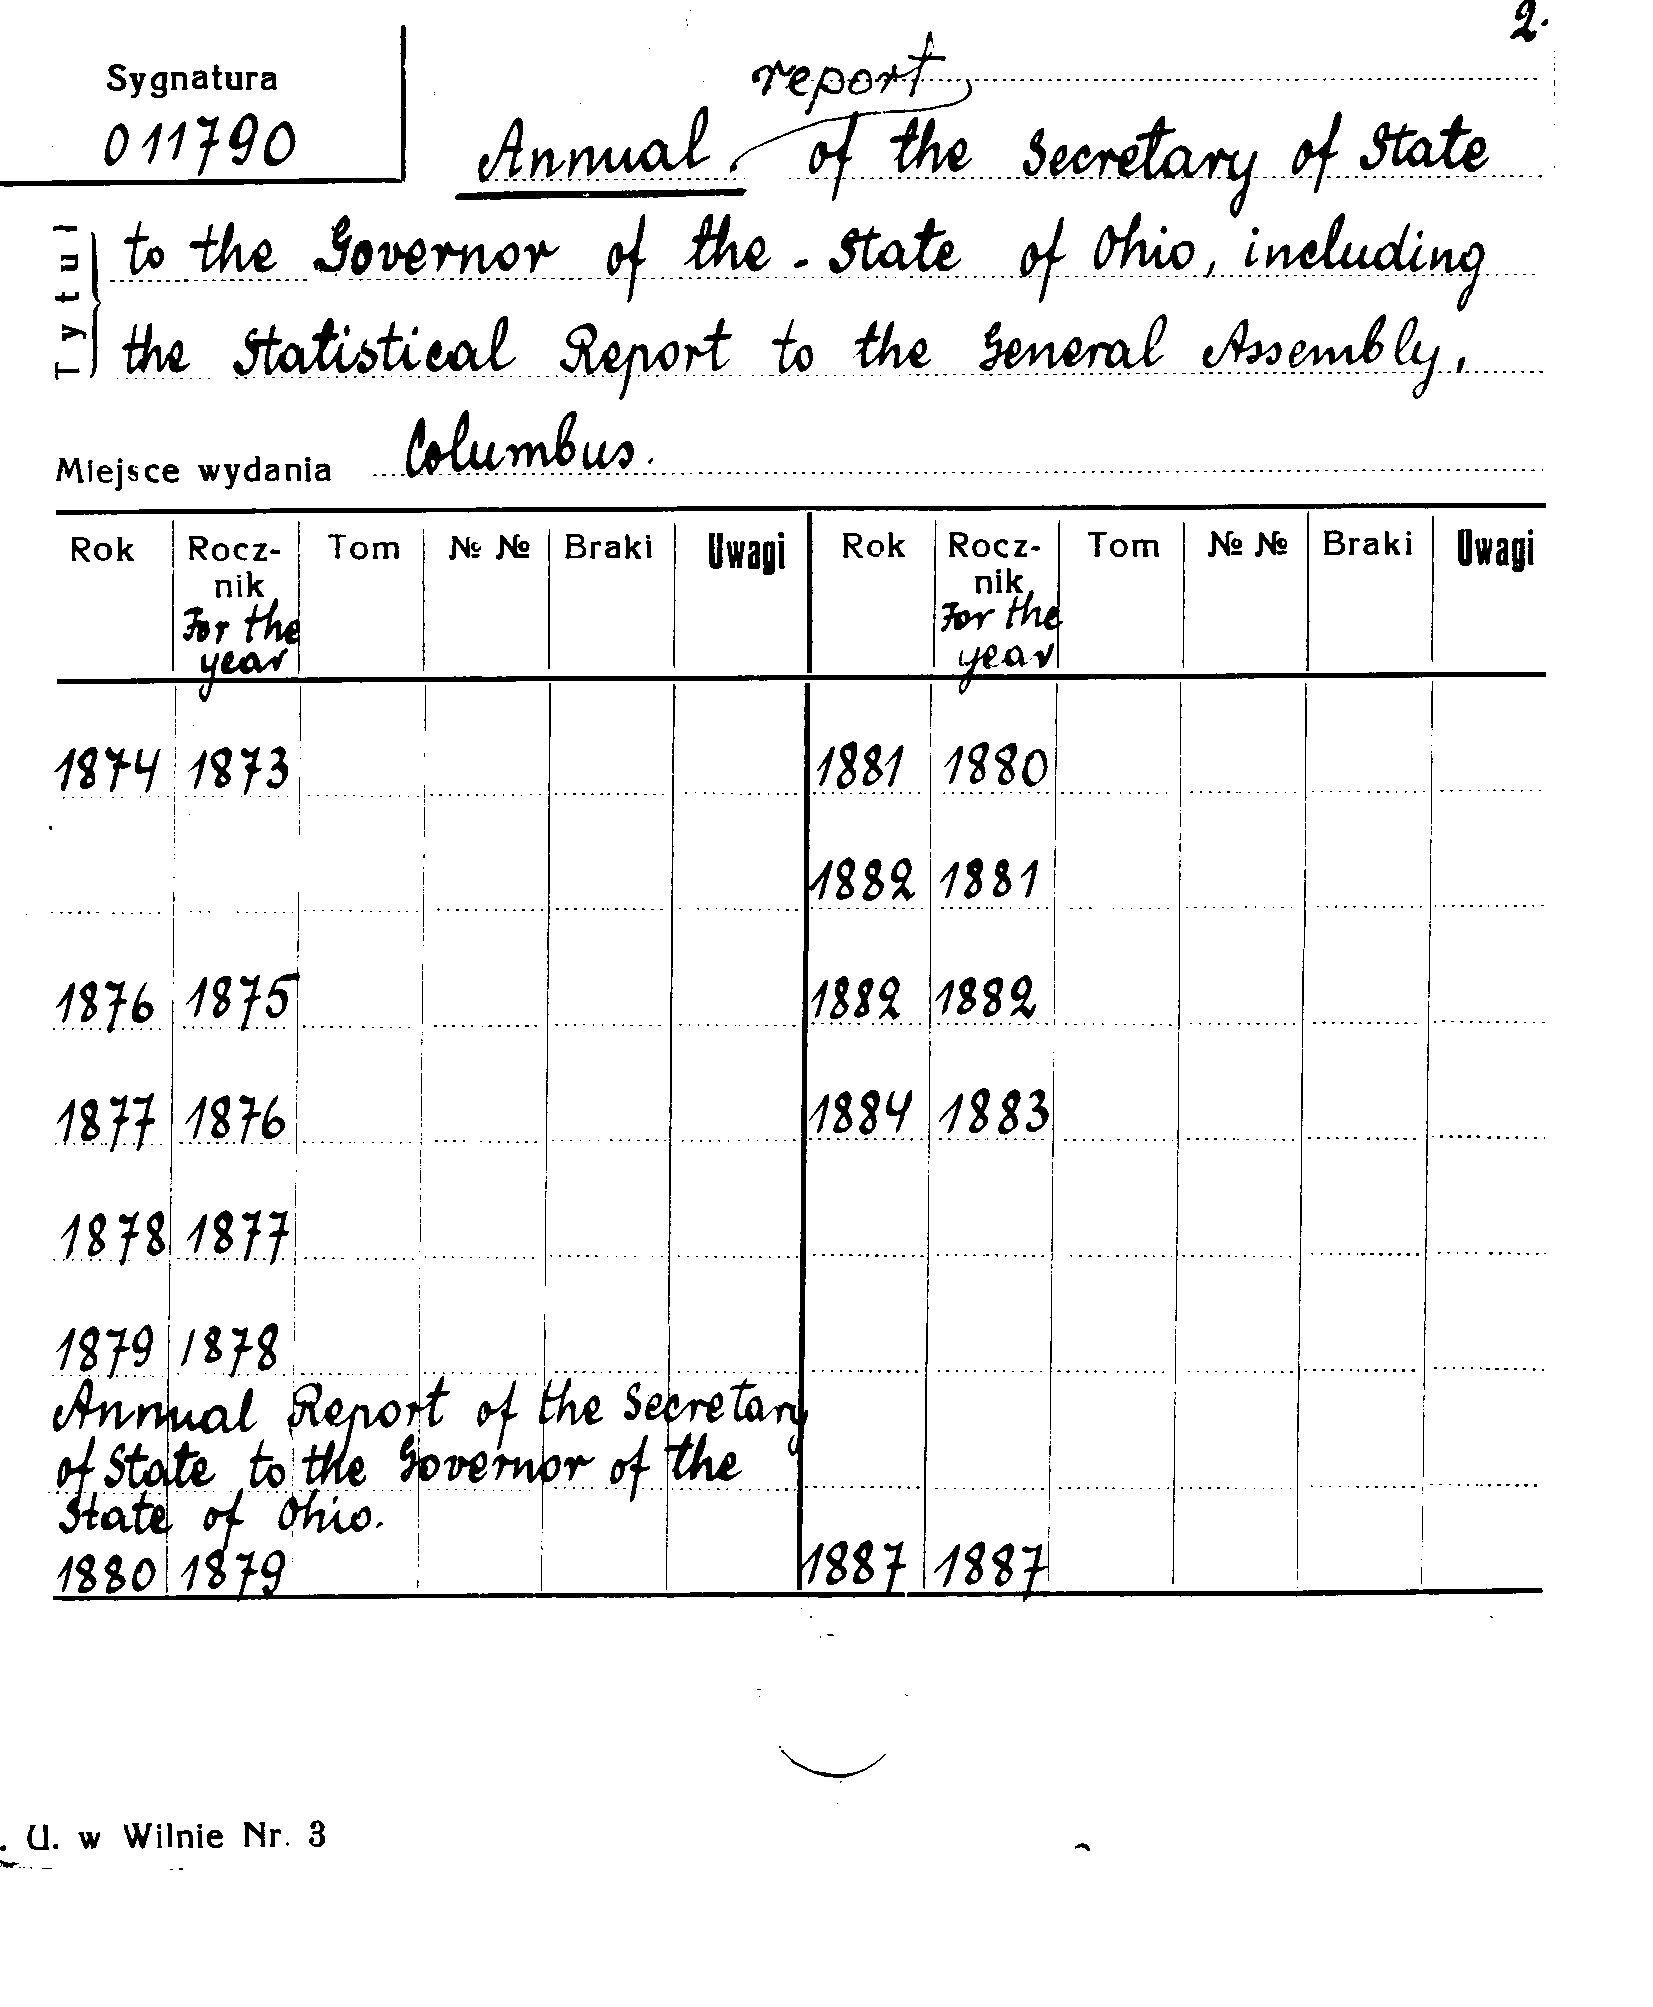 2.
Sygnatura
011790
report
Annual of the Secretary of State
to the Governor of the - State of Ohio, including
the Statistical Report to the General Assembly,
Tytuł
Miejsce wydania Columbus.
Rok Rocz- Tom № № Braki Uwagi Rok Rocz- Tom № № Braki Uwagi
nik nik
For the For the
year year
1874 1873 1881 1880
1882 1881
1876 1875 1882 1882
1877 1876 1884 1883
1878 1877
1879 1878
Annual Report of the Secretary
of State to the Governor of the
State of Ohio.
1880 1879 1887 1887
. U. w Wilnie Nr. 3